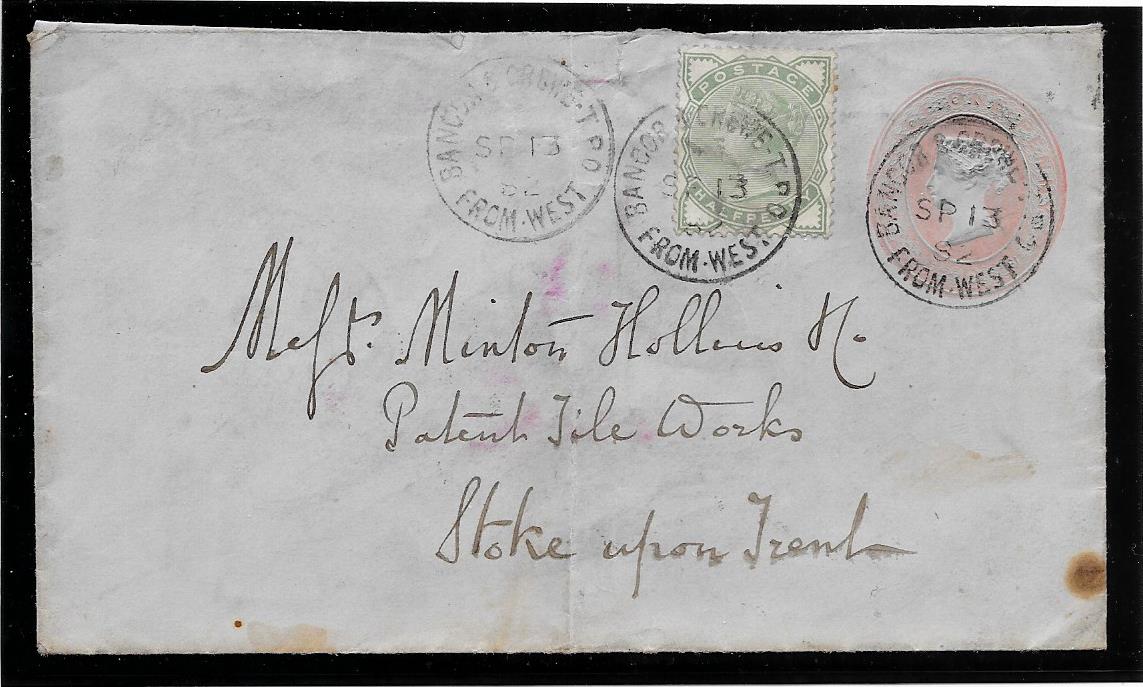 BANGOR & CREWE·T·P·O
SP 13
82
FROM·WEST
POSTAGE
HALFPENNY
BANGOR & CREWE·T·P·O
13
82
FROM·WEST
ONE
BANGOR & CREWE
SP 13
82
FROM·WEST
Messrs. Minton Hollins
Patent Tile Works
Stoke upon Trent